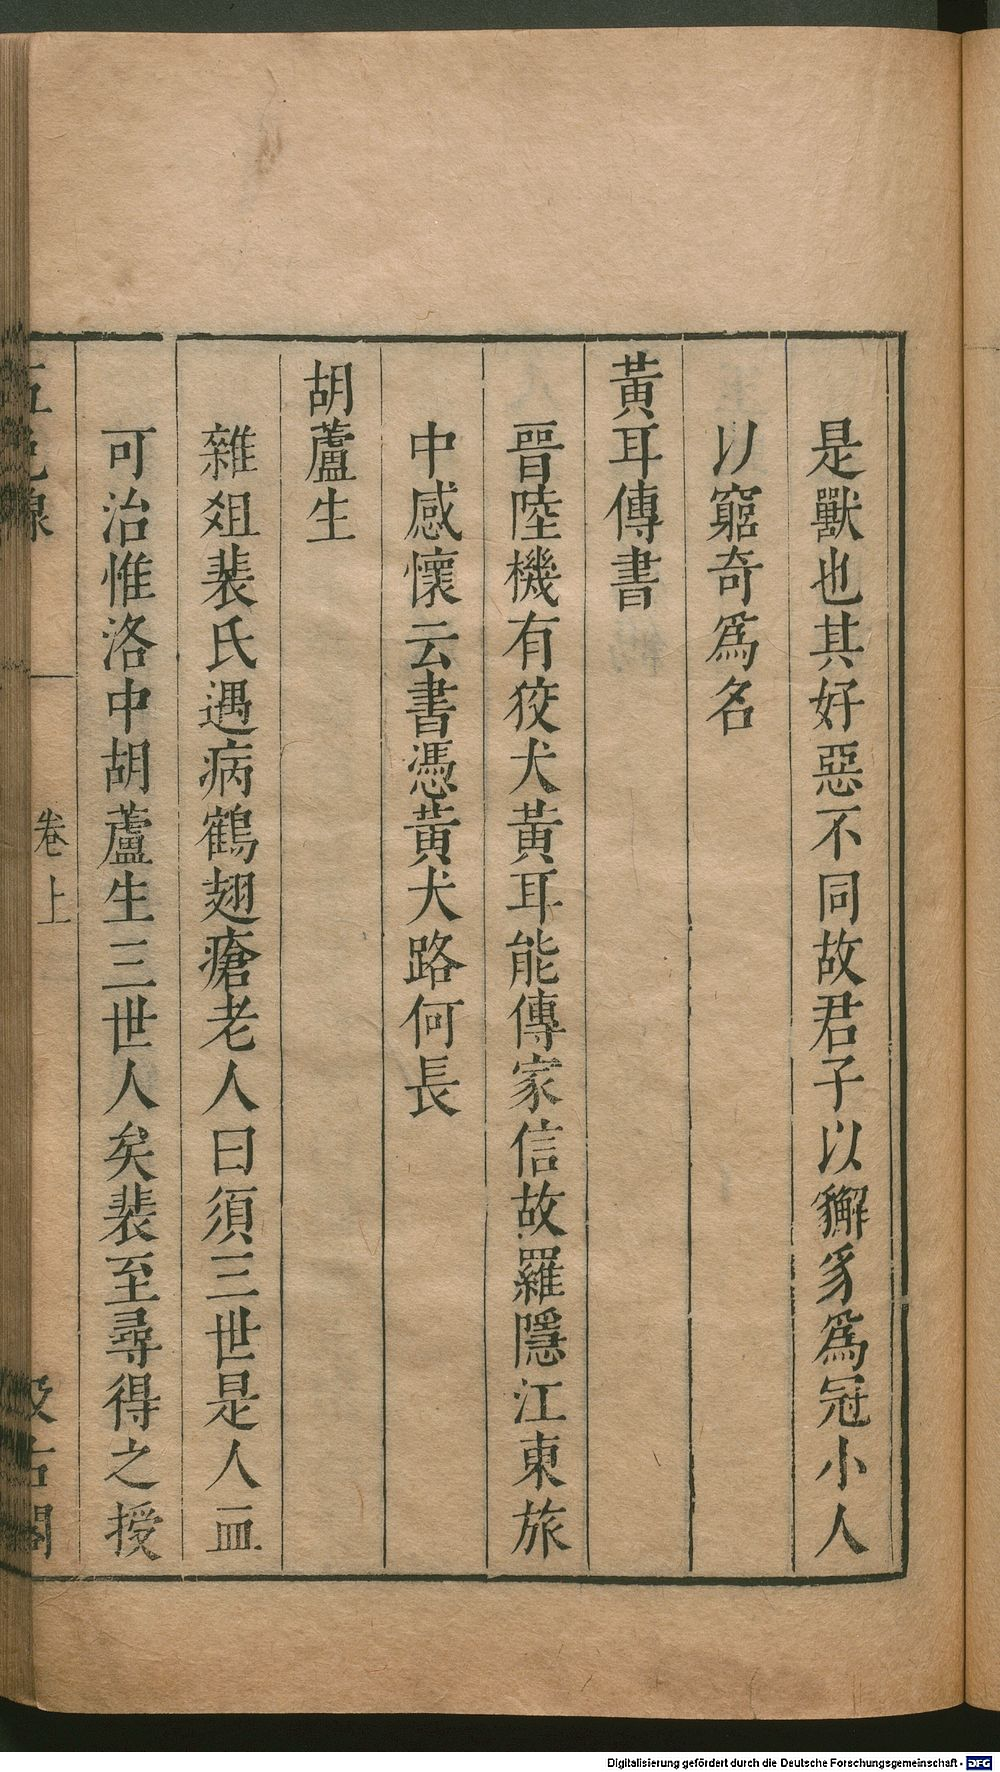 是獸也其好惡不同故君子以獬豸爲冠小人
以窮奇爲名
黃耳傳書
晉陸機有狡犬黃耳能傳家信故羅隱江東旅
中感懷云書憑黃犬路何長
胡蘆生
雜爼裴氏遇病鶴翅瘡老人曰須三世是人血
可治惟洛中胡蘆生三世人矣裴至尋得之授
五色線
卷上
汲古閣
Digitalisierung gefördert durch die Deutsche Forschungsgemeinschaft - DFG